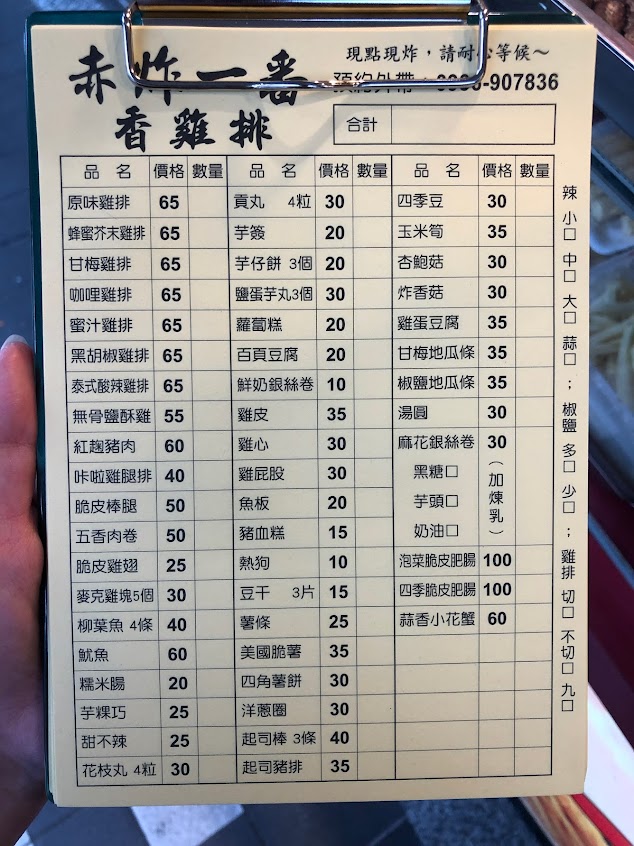 現點現炸，請耐心等候～
赤炸一番
預約外帶：
-907836
香雞排
合計
品名 價格 數量 品名 價格 數量 品名 價格 數量
原味雞排 65 貢丸 4粒 30 四季豆 30
蜂蜜芥末雞排 65 芋簽 20 玉米筍 35
甘梅雞排 65 芋仔餅 3個 20 杏鮑菇 30
咖哩雞排 65 鹽蛋芋丸3個 30 炸香菇 30
蜜汁雞排 65 蘿蔔糕 20 雞蛋豆腐 35
黑胡椒雞排 65 百頁豆腐 20 甘梅地瓜條 35
泰式酸辣雞排 65 鮮奶銀絲卷 10 椒鹽地瓜條 35
無骨鹽酥雞 55 雞皮 35 湯圓 30
紅麴豬肉 60 雞心 30 麻花銀絲卷 30
咔啦雞腿排 40 雞屁股 30 黑糖口
脆皮棒腿 50 魚板 20 芋頭口
五香肉卷 50 豬血糕 15 奶油口
（加煉乳）
脆皮雞翅 25 熱狗 10 泡菜脆皮肥腸 100
麥克雞塊5個 30 豆干 3片 15 四季脆皮肥腸 100
柳葉魚 4條 40 薯條 25 蒜香小花蟹 60
魷魚 60 美國脆薯 35
糯米腸 20 四角薯餅 30
芋粿巧 25 洋蔥圈 30
甜不辣 25 起司棒 3條 40
花枝丸 4粒 30 起司豬排 35
辣 小口 中口 大口 蒜口；椒鹽 多口 少口；雞排 切口 不切口 九口